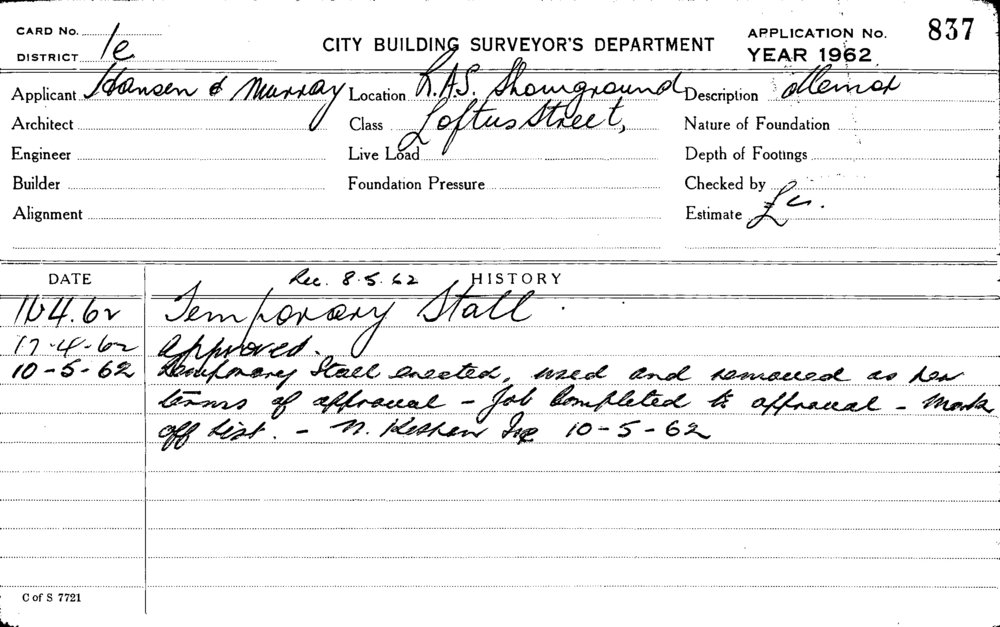 CARD No.
CITY BUILDING SURVEYOR'S DEPARTMENT
APPLICATION No. 837
DISTRICT 1e
YEAR 1962
Applicant Hansen & Murray Location R.A.S. Showground Description
Architect Class Loftus Street, Nature of Foundation
Engineer Live Load Depth of Footings
Builder Foundation Pressure Checked by
Alignment Estimate £
DATE Rec. 8.5.62 HISTORY
4.62 Temporary Stall.
17-4-62 Approved.
10-5-62 Temporary Stall erected, used and removed as per
terms of approval - Job Completed to approval - Mark
off list. - N. 10-5-62
C of S 7721